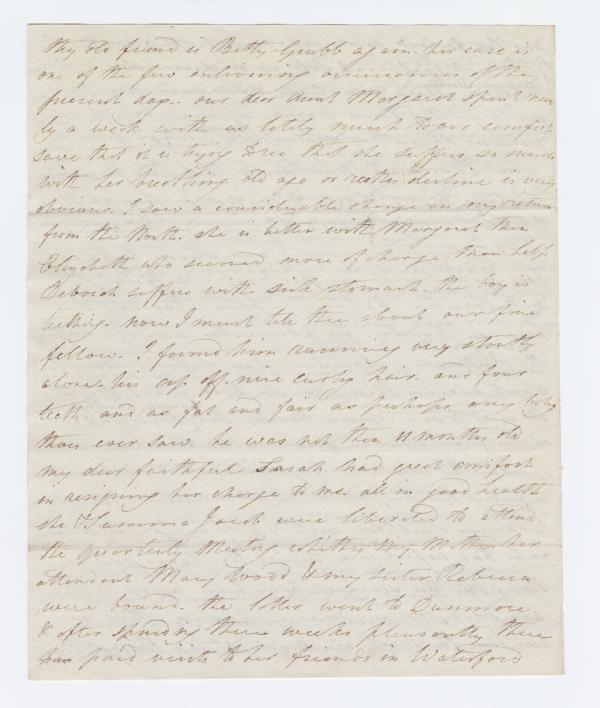 thy old friend is Betty Grubb again. her care is
one of the few enlivening occurrences of the
present day. our dear Aunt Margaret spent near
ly a week with us lately much to our comfort
save that it is trying to see that she suffers so much
with her breathing. old age or rather decline is very
obvious. I saw a considerable change on my return
from the North. she is better with Margaret than
Elizabeth who seemed more of charge than help.
Deborah suffers with sick stomach. the boy is
teething. now I must tell thee about our fine
fellow. I found him running very stoutly
alone. his cap off. nice curly hair. and four
teeth. and as fat and fair as perhaps any baby
thou ever saw. he was not then 11 months old
my dear faithful Sarah had great comfort
in resigning her charge to me all in good health
she & Susanna Jacob were liberated to attend
the Quarterly Meeting whither my Mother her
attendant Mary Wood & my sister Rebecca
were bound. the latter went to Dunmore
& after spending three weeks pleasantly there
has paid visits to her friends in Waterford